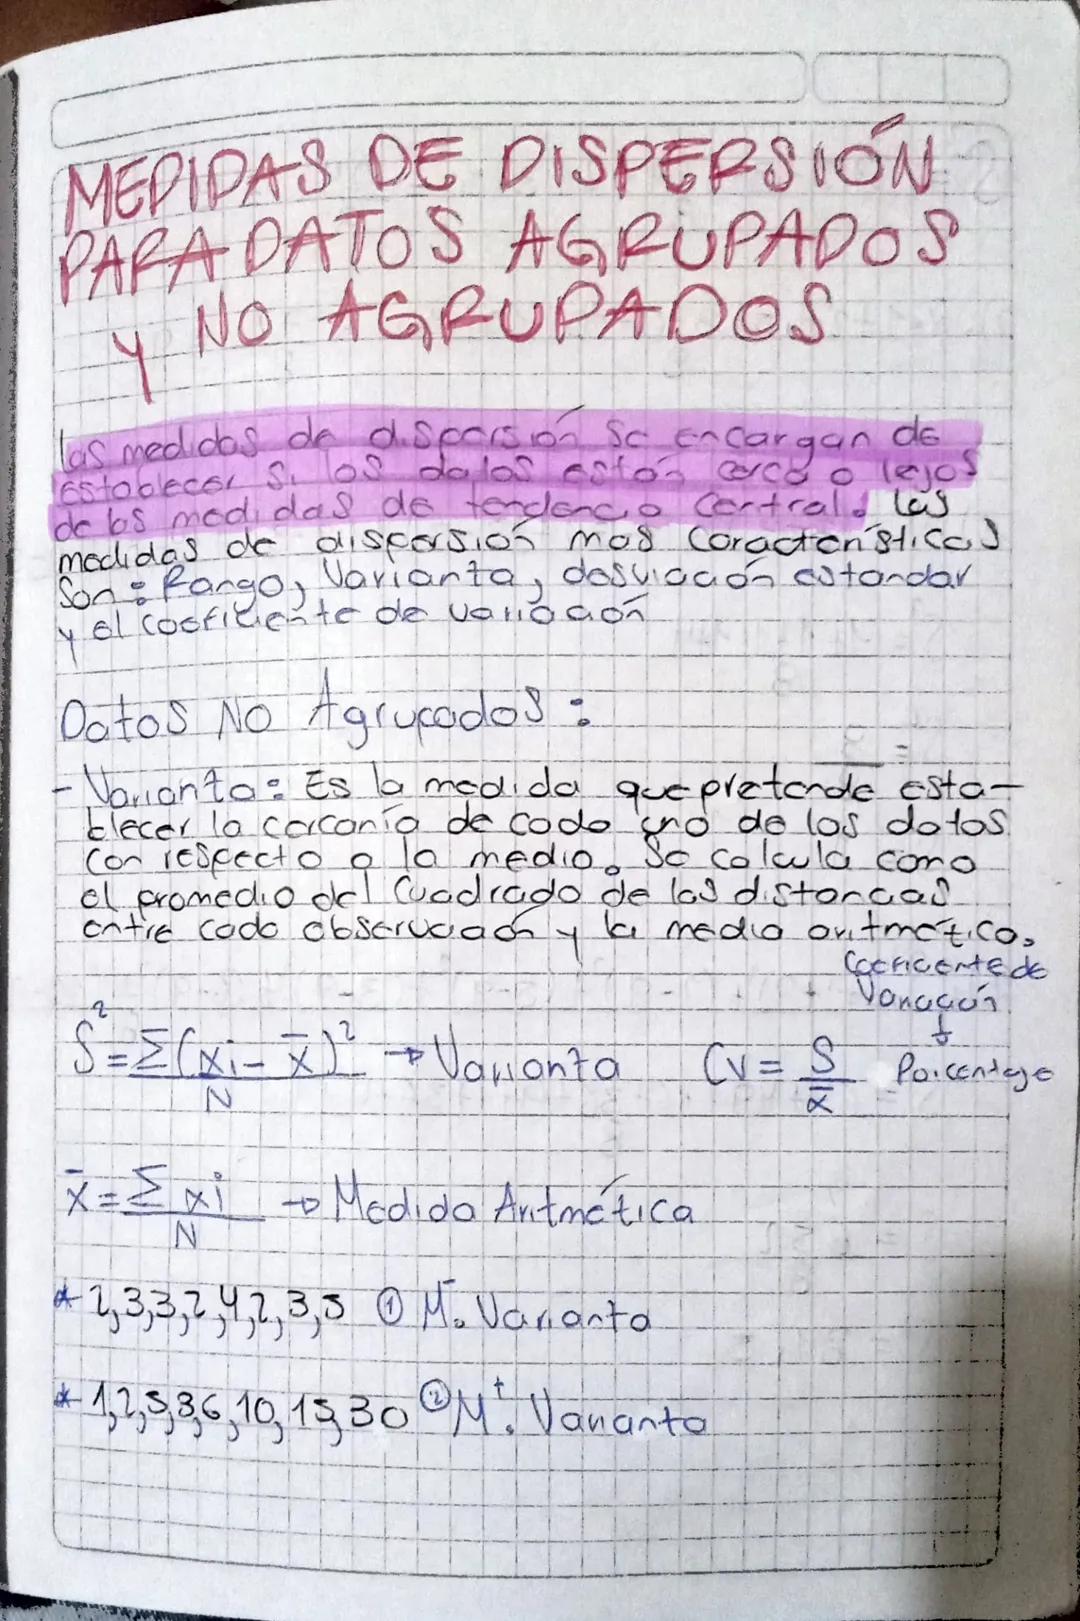 MEDIDAS DE DISPERSIÓN
PARA DATOS AGRUPADOS
Y NO AGRUPADOS
las medidas de dispersión se encargan de
establecer si los datos están cerca o lejos
de las medidas de tendencia central. las
medidas de dispersión mas caracteristicas
son: Rango, Varianza, desviación estandar
y el coeficiente de variación
Datos NO Agrupados:
- Varianza: Es la medida que pretende esta-
blecer la cercanía de cada uno de los datos
con respecto a la media. Se calcula como
el promedio del cuadrado de las distancias
entre cada observación y la media aritmética.
Coeficiente de
Variación
S² = Σ(xi - x̄)² / N → Varianza CV = S / x̄ Porcentaje
x̄ = Σ xi / N → Medida Aritmética
* 2,3,3,2,4,2,3,5 ① M⁻. Varianza
* 1,2,5,8,6,10,15,30 ② M⁺. Varianza